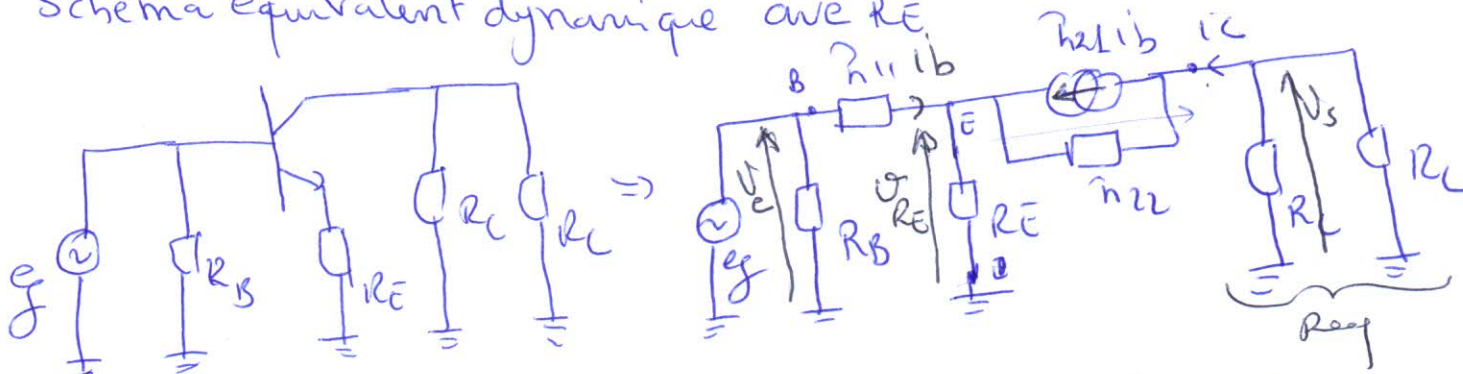 Schéma équivalent dynamique ave RE
eg
RB
RE
RC
RL
=>
B
h11
ib
E
h21ib
ic
h22
Ve
eg
RB
vRE
RE
RL
Vs
RL
Req